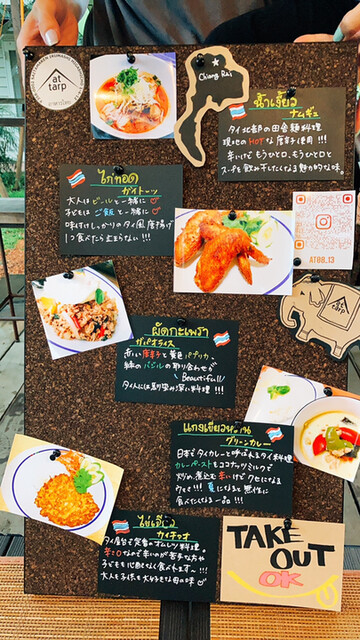 at
tarp
อาหารไทย
Chiang Rai
น้ำเงี้ยว
ナムギュ
タイ北部の田舎麺料理
現地のHOTな唐辛子使用!!!
辛いけどもうひと口、もうひと口と
スープを飲み干したくなる魅力的な味。
ไก่ทอด
ガイトーツ
大人はビールと一緒に
子どもはご飯と一緒に
味付けしっかりのタイ風唐揚げ
1つ食べたら止まらない!!!
ATBB.13
at
tarp
ผัดกะเพรา
ガパオライス
赤い唐辛子と黄色パプリカ、
緑のバジルの取り合わせが
Beautiful!!
タイ人には馴染み深い料理!!!
แกงเขียวหวาน
グリーンカレー
日本でタイカレーと呼ばれるタイ料理
カレーペーストをココナッツミルクで
炒め、煮込む辛いけどクセになる
クセ!!! 夏になると無性に
食べたくなる一品!!!
ไข่เจียว
カイチァオ
タイ屋台で定番のオムレツ料理。
辛さ0なので辛いのが苦手な方や
子どもも心配なく食べれます〜!!!
大人も子供も大好きな母の味
TAKE
OUT
OK